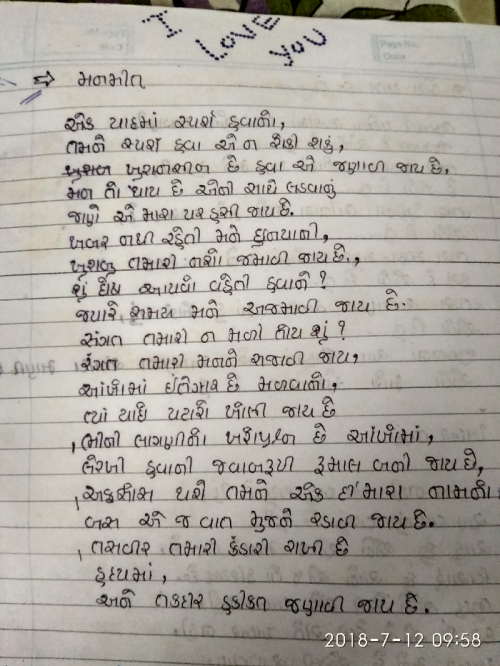 I LOVE YOU
Page No.
Date
⇒ મનમીત
એક યાદમાં સ્પર્શ હવાનો,
તમને સ્પર્શે હવા એ ન રોકી શકું,
ખુશનસીબ છે હવા એ જણાવી જાય છે,
મન તો થાય છે એની સાથે લડવાનું
જાણે એ મારા પર હસી જાય છે.
ખબર નથી રહેતી મને દુનિયાની,
ખુશબુ તમારી નશો જમાવી જાય છે.,
શું દોષ આપવો વહેતી હવાને?
જ્યારે સમય મને અજમાવી જાય છે.
સંગત તમારી ન મળી તોય શું?
રંગત તમારી મનને સજાવી જાય,
આંખોમાં ઈંતેજાર છે મળવાનો,
ત્યાં યાદ પટારો ખોલી જાય છે
ભીની લાગણીનો પ્રશ્ન છે આંખોમાં,
લેરખી હવાની જવાબરૂપી રૂમાલ બની જાય છે,
અફસોસ થશે તમને એક દી' મારા નામનો,
બસ એ જ વાત મુજને રડાવી જાય છે.
તસવીર તમારી કંડારી રાખી છે
હૃદયમાં,
અને તકદીર હકીકત જણાવી જાય છે.
2018-7-12 09:58